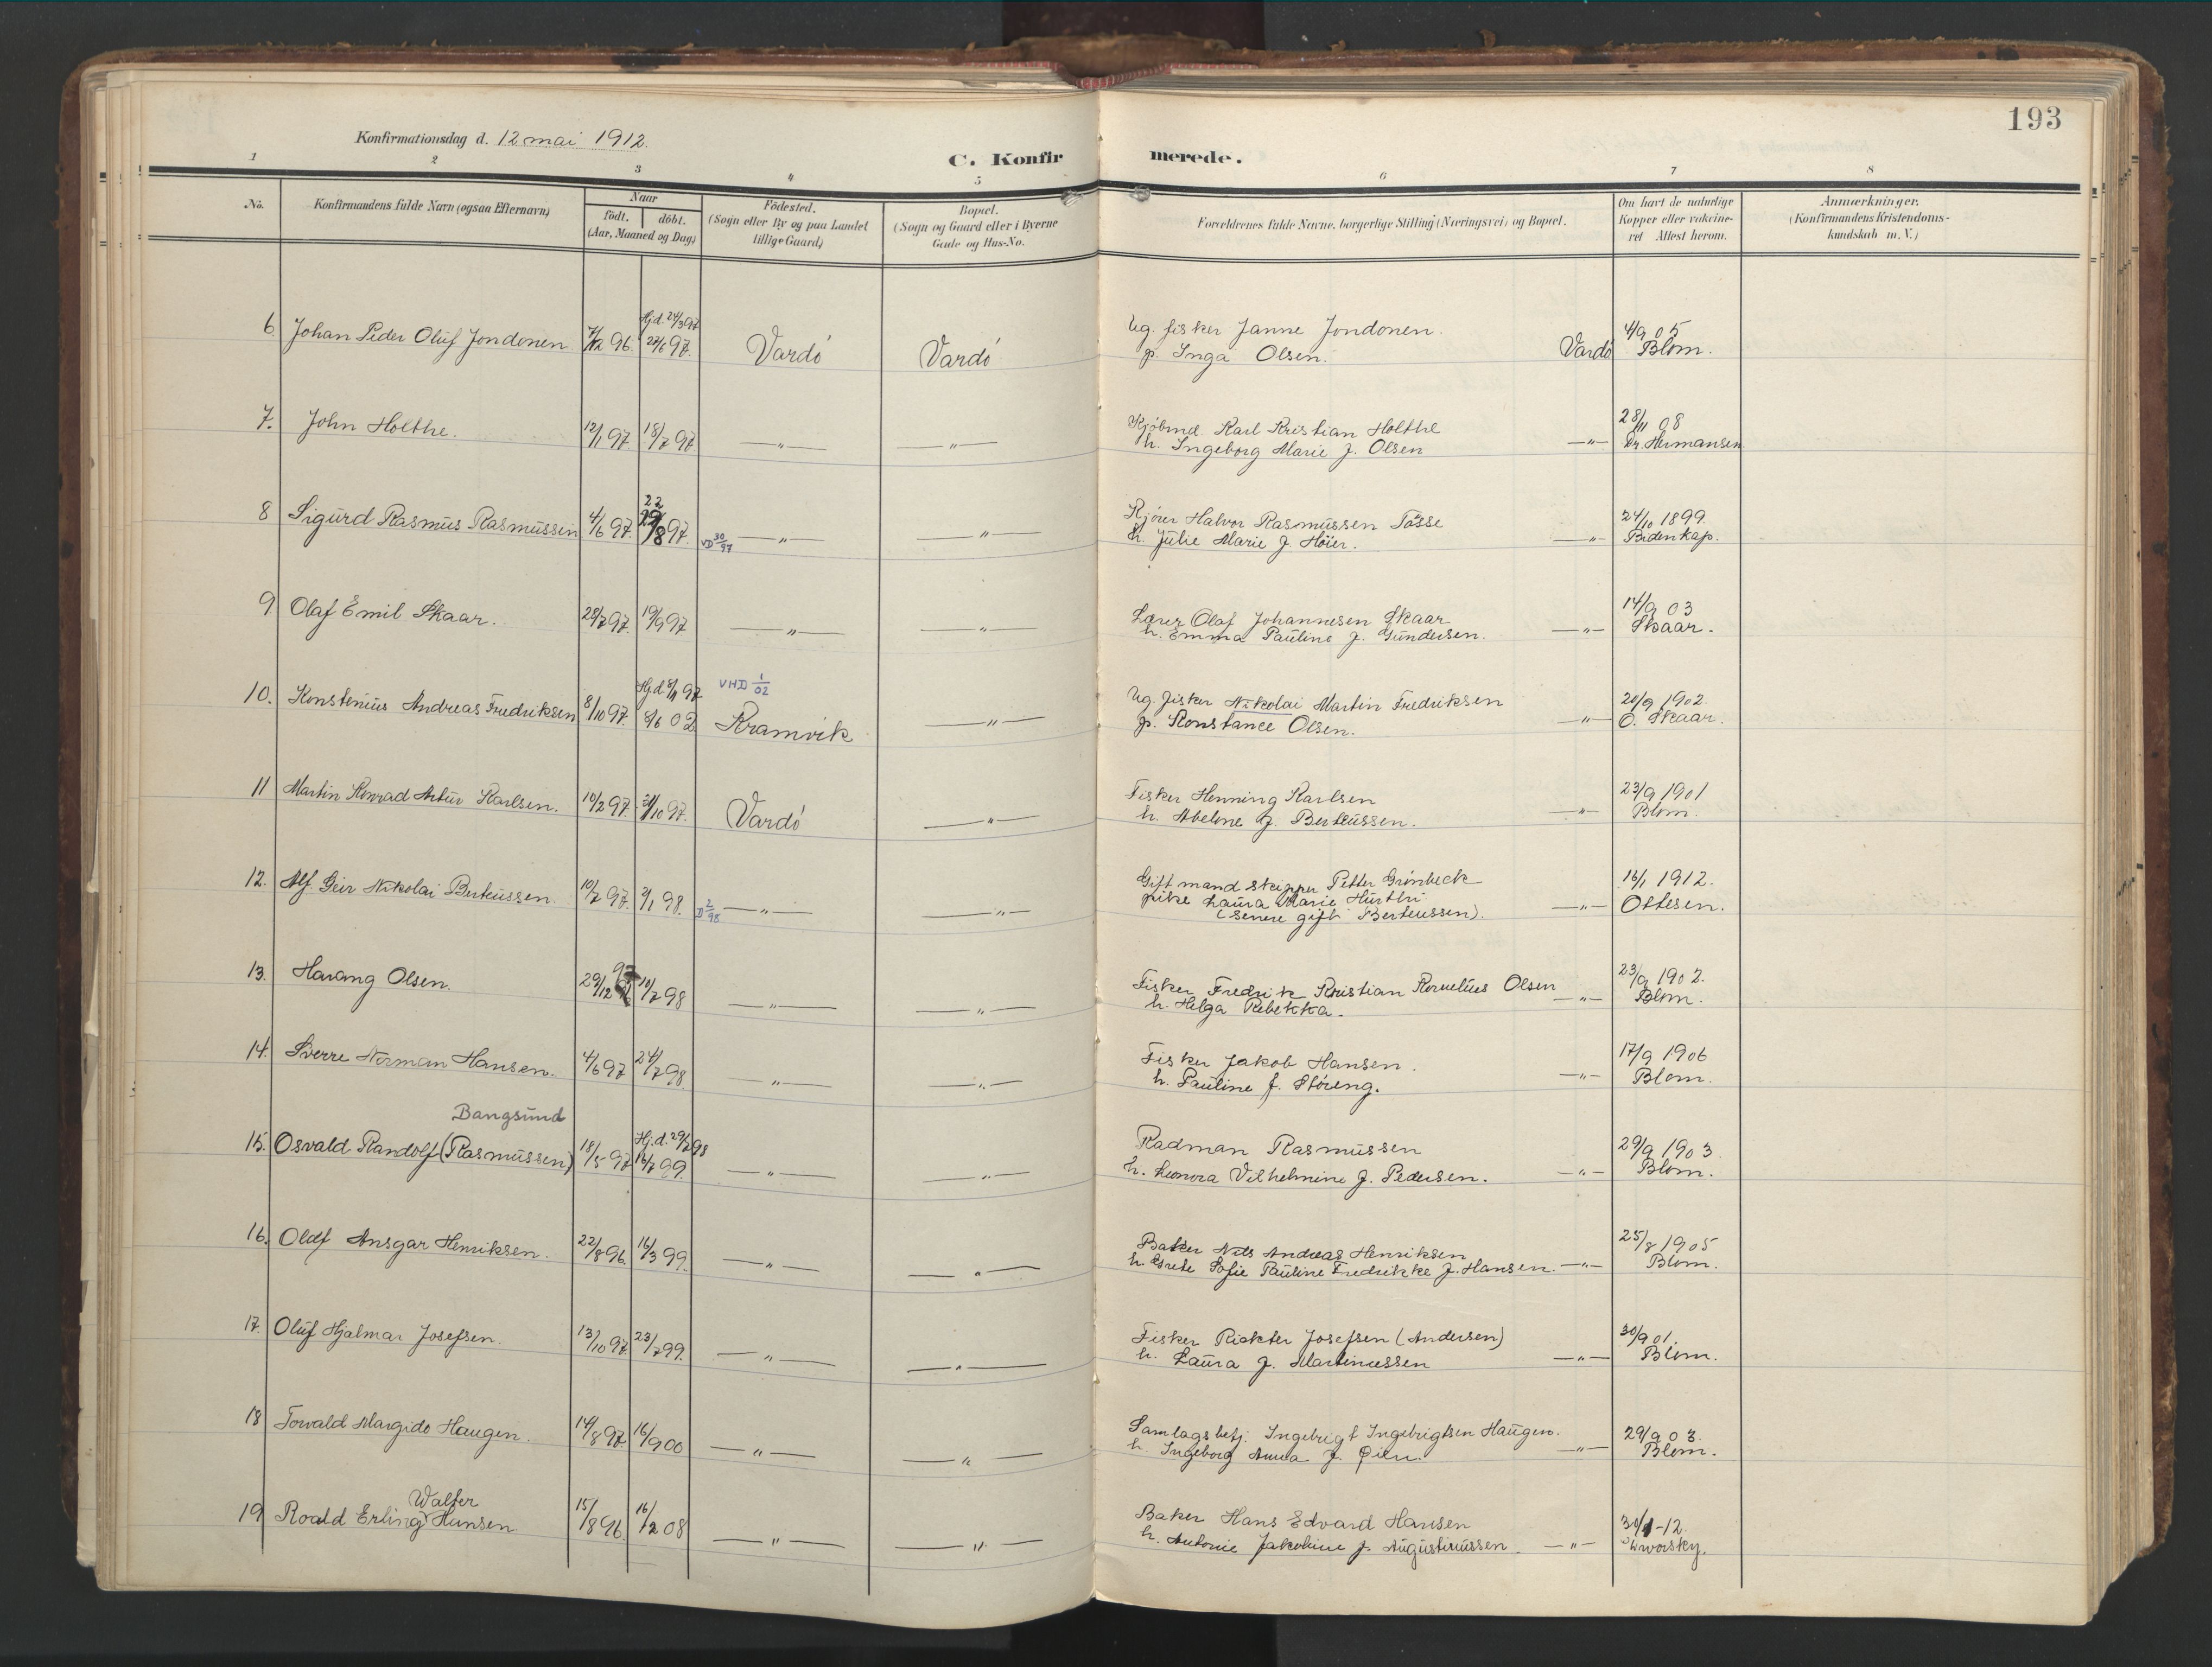 193
Konfirmationsdag d. 12 mai 1912.
C. Konfirmerede.
1 2 3 4 5 6 7 8
No.
Konfirmandens fulde Navn (ogsaa Efternavn)
Naar
födt. döbt.
(Aar, Maaned og Dag)
Födested.
(Sogn eller By og paa Landet
tillige Gaard)
Bopæl.
(Sogn og Gaard eller i Byerne
Gade og Hus-No.
Forældrenes fulde Navne, borgerlige Stilling (Næringsvei) og Bopæl.
Om havt de naturlige
Kopper eller vakcine-
ret Attest herom.
Anmærkninger.
(Konfirmandens Kristendoms-
kundskab m. V.)
Hj.d. 24/3 97
6. Johan Peder Oluf Jondonen 7/12 96. 27/6 97. Vardö Vardö
Ug. fisker Janne Jondonen.
p. Inga Olsen. Vardö
4/9 05
Blom.
7. John Holthe. 12/1 97. 18/7 97 —〃— —〃—
Kjöbmd. Karl Kristian Holthe
h. Ingeborg Marie f. Olsen —〃—
28/11 08
Dr. Hermansen
22
8 Sigurd Rasmus Rasmussen 4/6 97. 29/8 97. VD 30/97 —〃— —〃—
Kjörer Halvor Rasmussen Tösse
h. Julie Marie f. Höier. —〃—
24/10 1899.
Bidenkap.
9 Olaf Emil Skaar. 28/7 97. 19/9 97 —〃— —〃—
Lærer Olaf Johannesen Skaar
h. Emma Pauline f. Gundersen. —〃—
14/9 03
Skaar.
Hj.d. 8/11 97 VHD 1/02
10. Konstenius Andreas Fredriksen 8/10 97. 8/6 02 Kramvik —〃—
Ug. fisker Nikolai Martin Fredriksen
p. Konstance Olsen. —〃—
20/9 1902.
O. Skaar.
11 Martin Konrad Artur Karlsen. 10/2 97. 31/10 97. Vardö —〃—
Fisker Henning Karlsen
h. Abelone f. Berteussen. —〃—
23/9 1901
Blom.
12. Alf Geir Nikolai Berteussen. 10/7 97. 2/1 98. D 2/98 —〃— —〃—
Gift mand skipper Petter Grönbeck
pike Laura Marie Hurthi
(senere gift Berteussen). —〃—
16/1 1912.
Ottesen.
97
13. Harang Olsen. 29/12 10/7 98 —〃— —〃—
Fisker Fredrik Kristian Kornelius Olsen
h. Helga Rebekka. —〃—
23/9 1902.
Blom.
14. Sverre Norman Hansen. 4/6 97 24/7 98. —〃— —〃—
Fisker Jakob Hansen.
h. Pauline f. Störeng. —〃—
17/9 1906
Blom.
Bangsund
Hj.d. 29/7 98
15. Osvald Randolf (Rasmussen) 18/5 97 16/7 99. —〃— —〃—
Radman Rasmussen
h. Leonora Vilhelmine f. Pedersen. —〃—
29/9 1903.
Blom.
16. Olaf Ansgar Henriksen. 22/8 96. 16/3 99. —〃— —〃—
Baker Nils Andreas Henriksen
h. Grete Sofie Pauline Fredrikke f. Hansen. —〃—
25/8 1905
Blom.
17. Oluf Hjalmar Josefsen. 13/10 97. 23/7 99. —〃— —〃—
Fisker Rickter Josefsen (Andersen)
h. Laura f. Martinussen —〃—
30/9 01.
Blom.
18 Torvald Margido Haugen. 14/8 97. 16/9 00 —〃— —〃—
Samlagsbetj. Ingebrigt Ingebrigtsen Haugen.
h. Ingeborg Anna f. Öien. —〃—
29/9 03.
Blom.
Walter
19 Roald Erling Hansen 15/8 96. 16/2 08 —〃— —〃—
Baker Hans Edvard Hansen
h. Antonie Jakobine f. Augustinussen. —〃—
30/1-12.